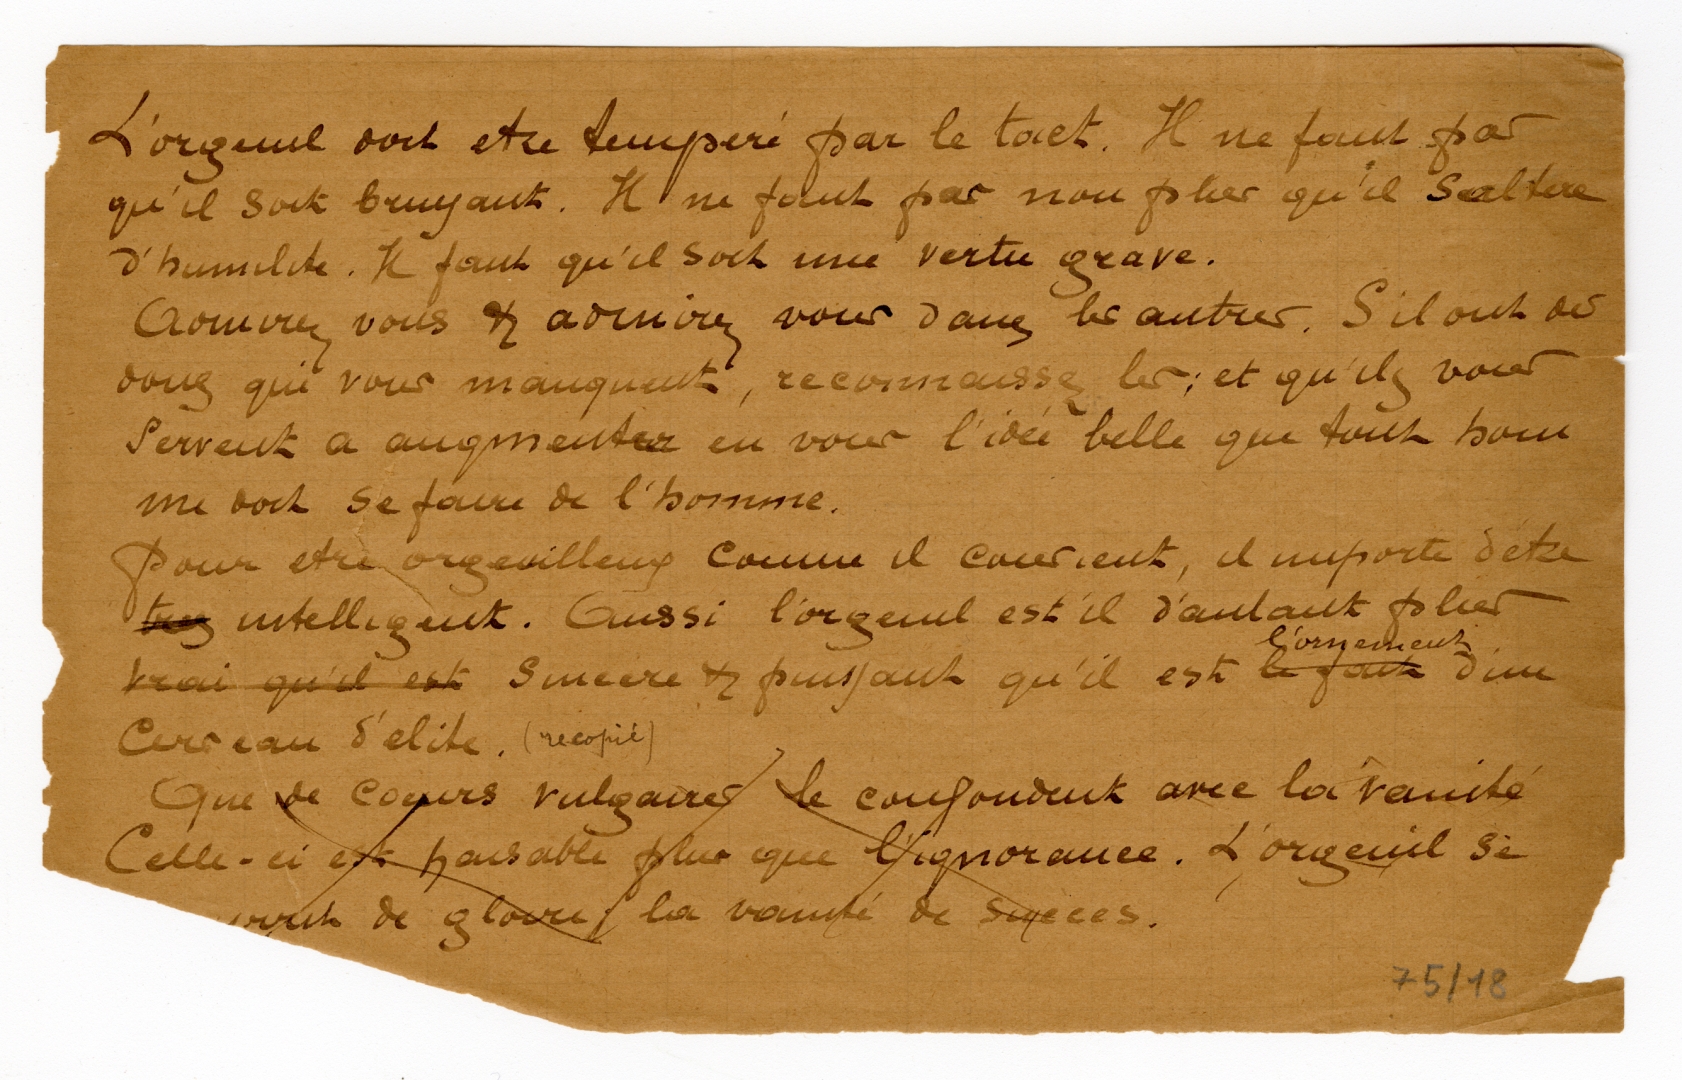 L'orgeuil doit etre temperé par le tact. Il ne faut pas
qu'il soit bruyant. Il ne faut pas non plus qu'il s'altere
d'humilite. Il faut qu'il soit une vertu grave.
Admirez vous & admirez vous dans les autres. S'il ont des
dons qui vous manquent, reconnaissez les ; et qu'ils vous
servent a augmenter en vous l'idée belle que tout hom
me doit se faire de l'homme.
Pour etre orgeuilleux comme il convient, il importe d'être
tres intelligent. Aussi l'orgeuil est il d'autant plus
l'ornement
vrai qu'il est sincere & puissant qu'il est le fait d'un
cerveau d'élite. (recopié)
Que de coeurs vulgaires le confondent avec la vanité
Celle-ci est haissable plus que l'ignorance. L'orgeuil se
de gloire ; la vanité de succes.
75/18